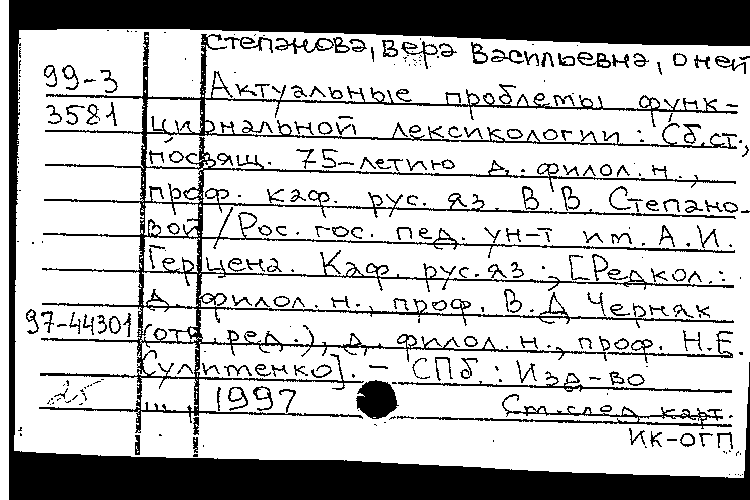 Степанова, Вера Васильевна, о ней
99-3 Актуальные проблемы функ-
3581 циональной лексикологии : Сб.ст.,
посвящ. 75-летию д. филол. н.,
проф. каф. рус. яз. В. В. Степано-
вой / Рос. гос. пед. ун-т им. А. И.
Герцена. Каф. рус. яз ; [Редкол. :
д. филол. н., проф. В. Д Черняк
97-44301 (отв. ред.), д. филол. н., проф. Н. Е.
Сулименко]. – СПб. : Изд-во
25 ... , 1997 См. след карт.
ИК-ОГП